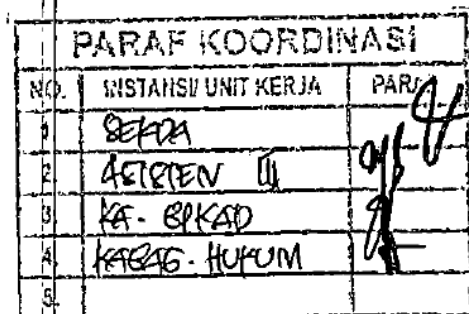 PARAF KOORDINASI
NO. INSTANSI/ UNIT KERJA PARAF
1 SEKDA
2 ASISTEN III
3 KA. BPKAD
4. KABAG. HUKUM
5.